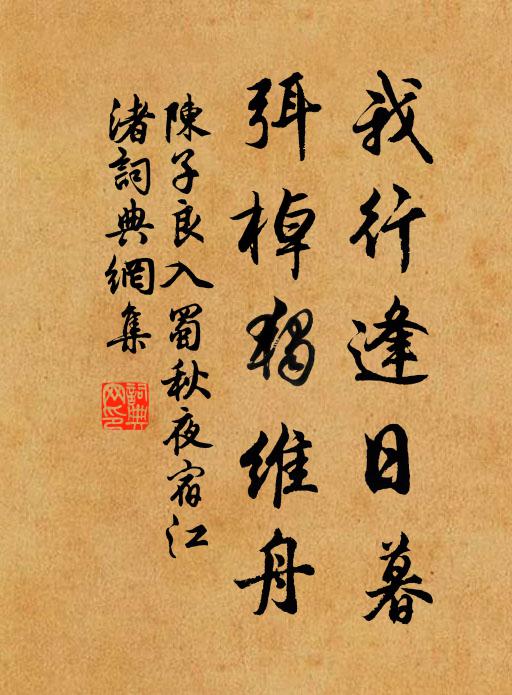 我行逢日暮
弭棹獨維舟
陳子良入蜀秋夜宿江
渚詞典網集
詞典
网印